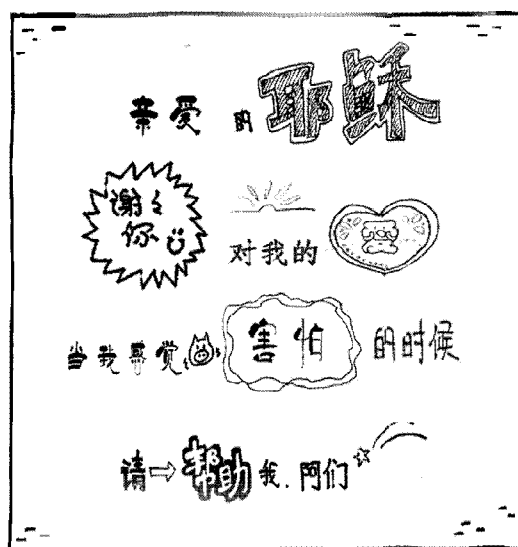 亲爱的耶稣
谢々你 对我的
当我感觉害怕的时候
请→帮助我.阿们